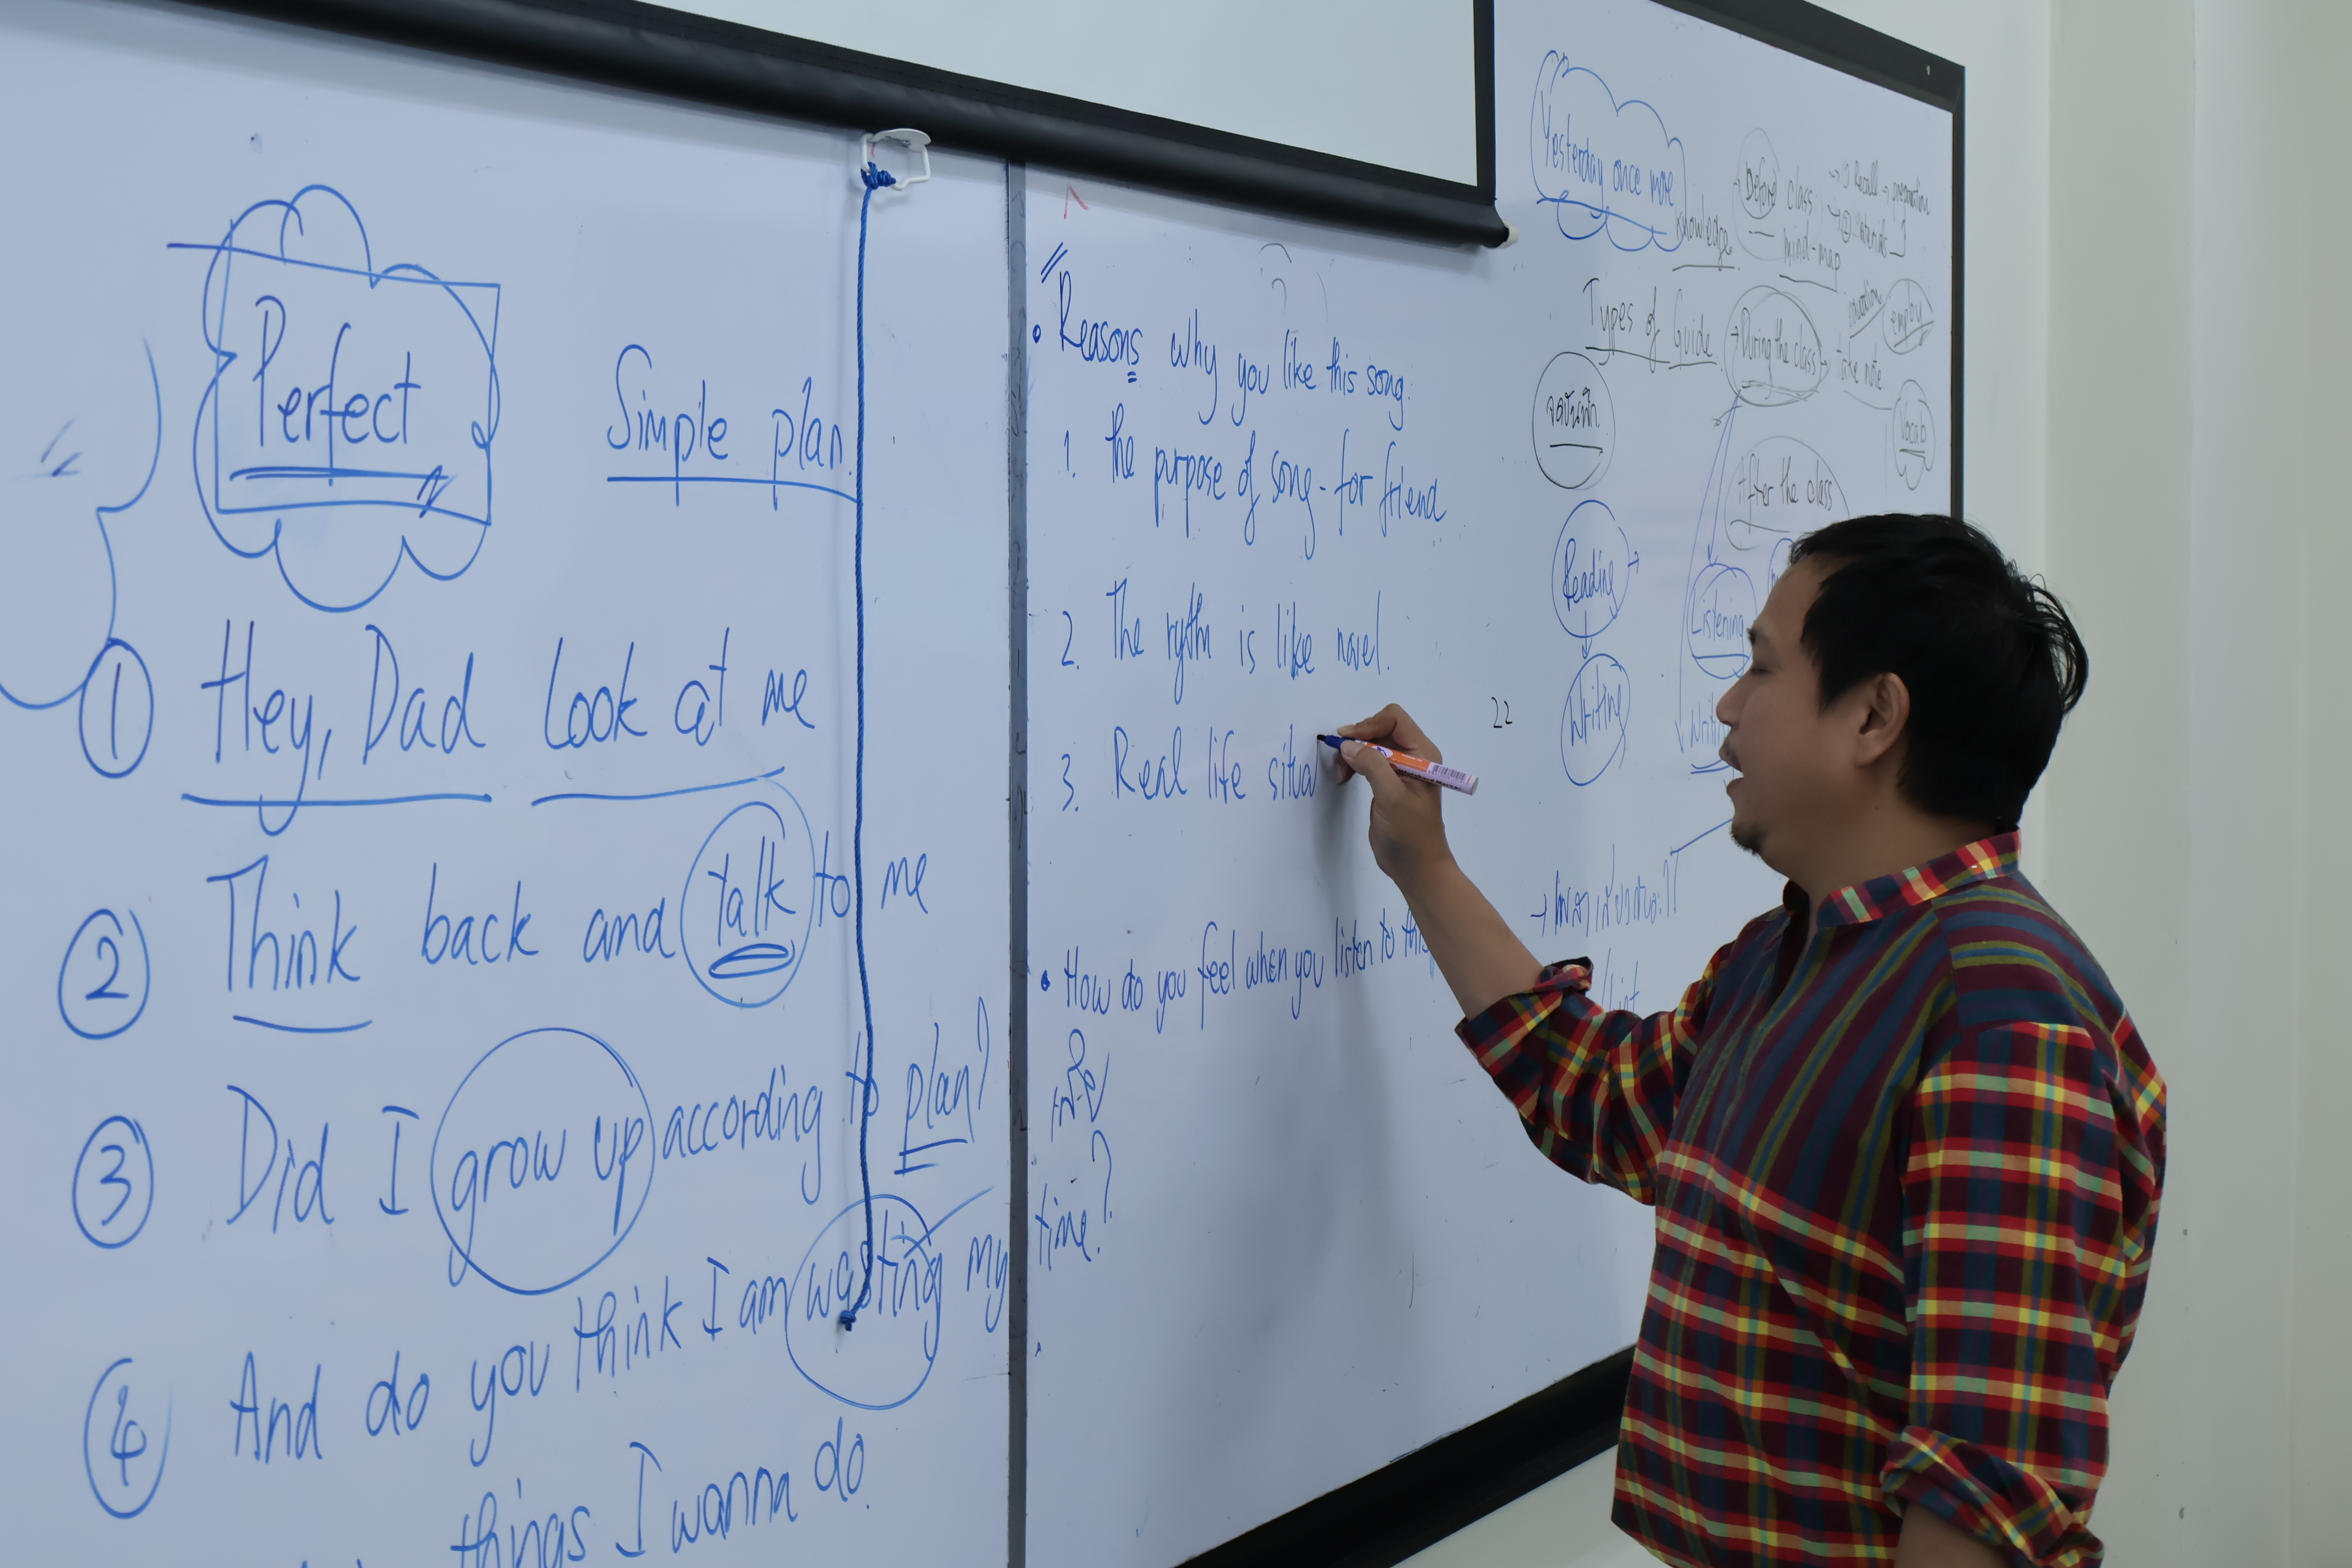 Perfect
Simple plan.
1 Hey, Dad look at me
2 Think back and talk to me
3 Did I grow up according to plan?
4 And do you think I am wasting my time?
things I wanna do.
• Reasons why you like this song.
1. The purpose of song - for friend
2. The rythm is like novel.
3. Real life situa
• How do you feel when you listen to this
Yesterday once more
knowledge
Before class
Recall → preparation
mind-map
Types of Guide
During the class → take note
employ
Vocab
จดบันทึก
After the class
Reading →
Listening
Writing
22